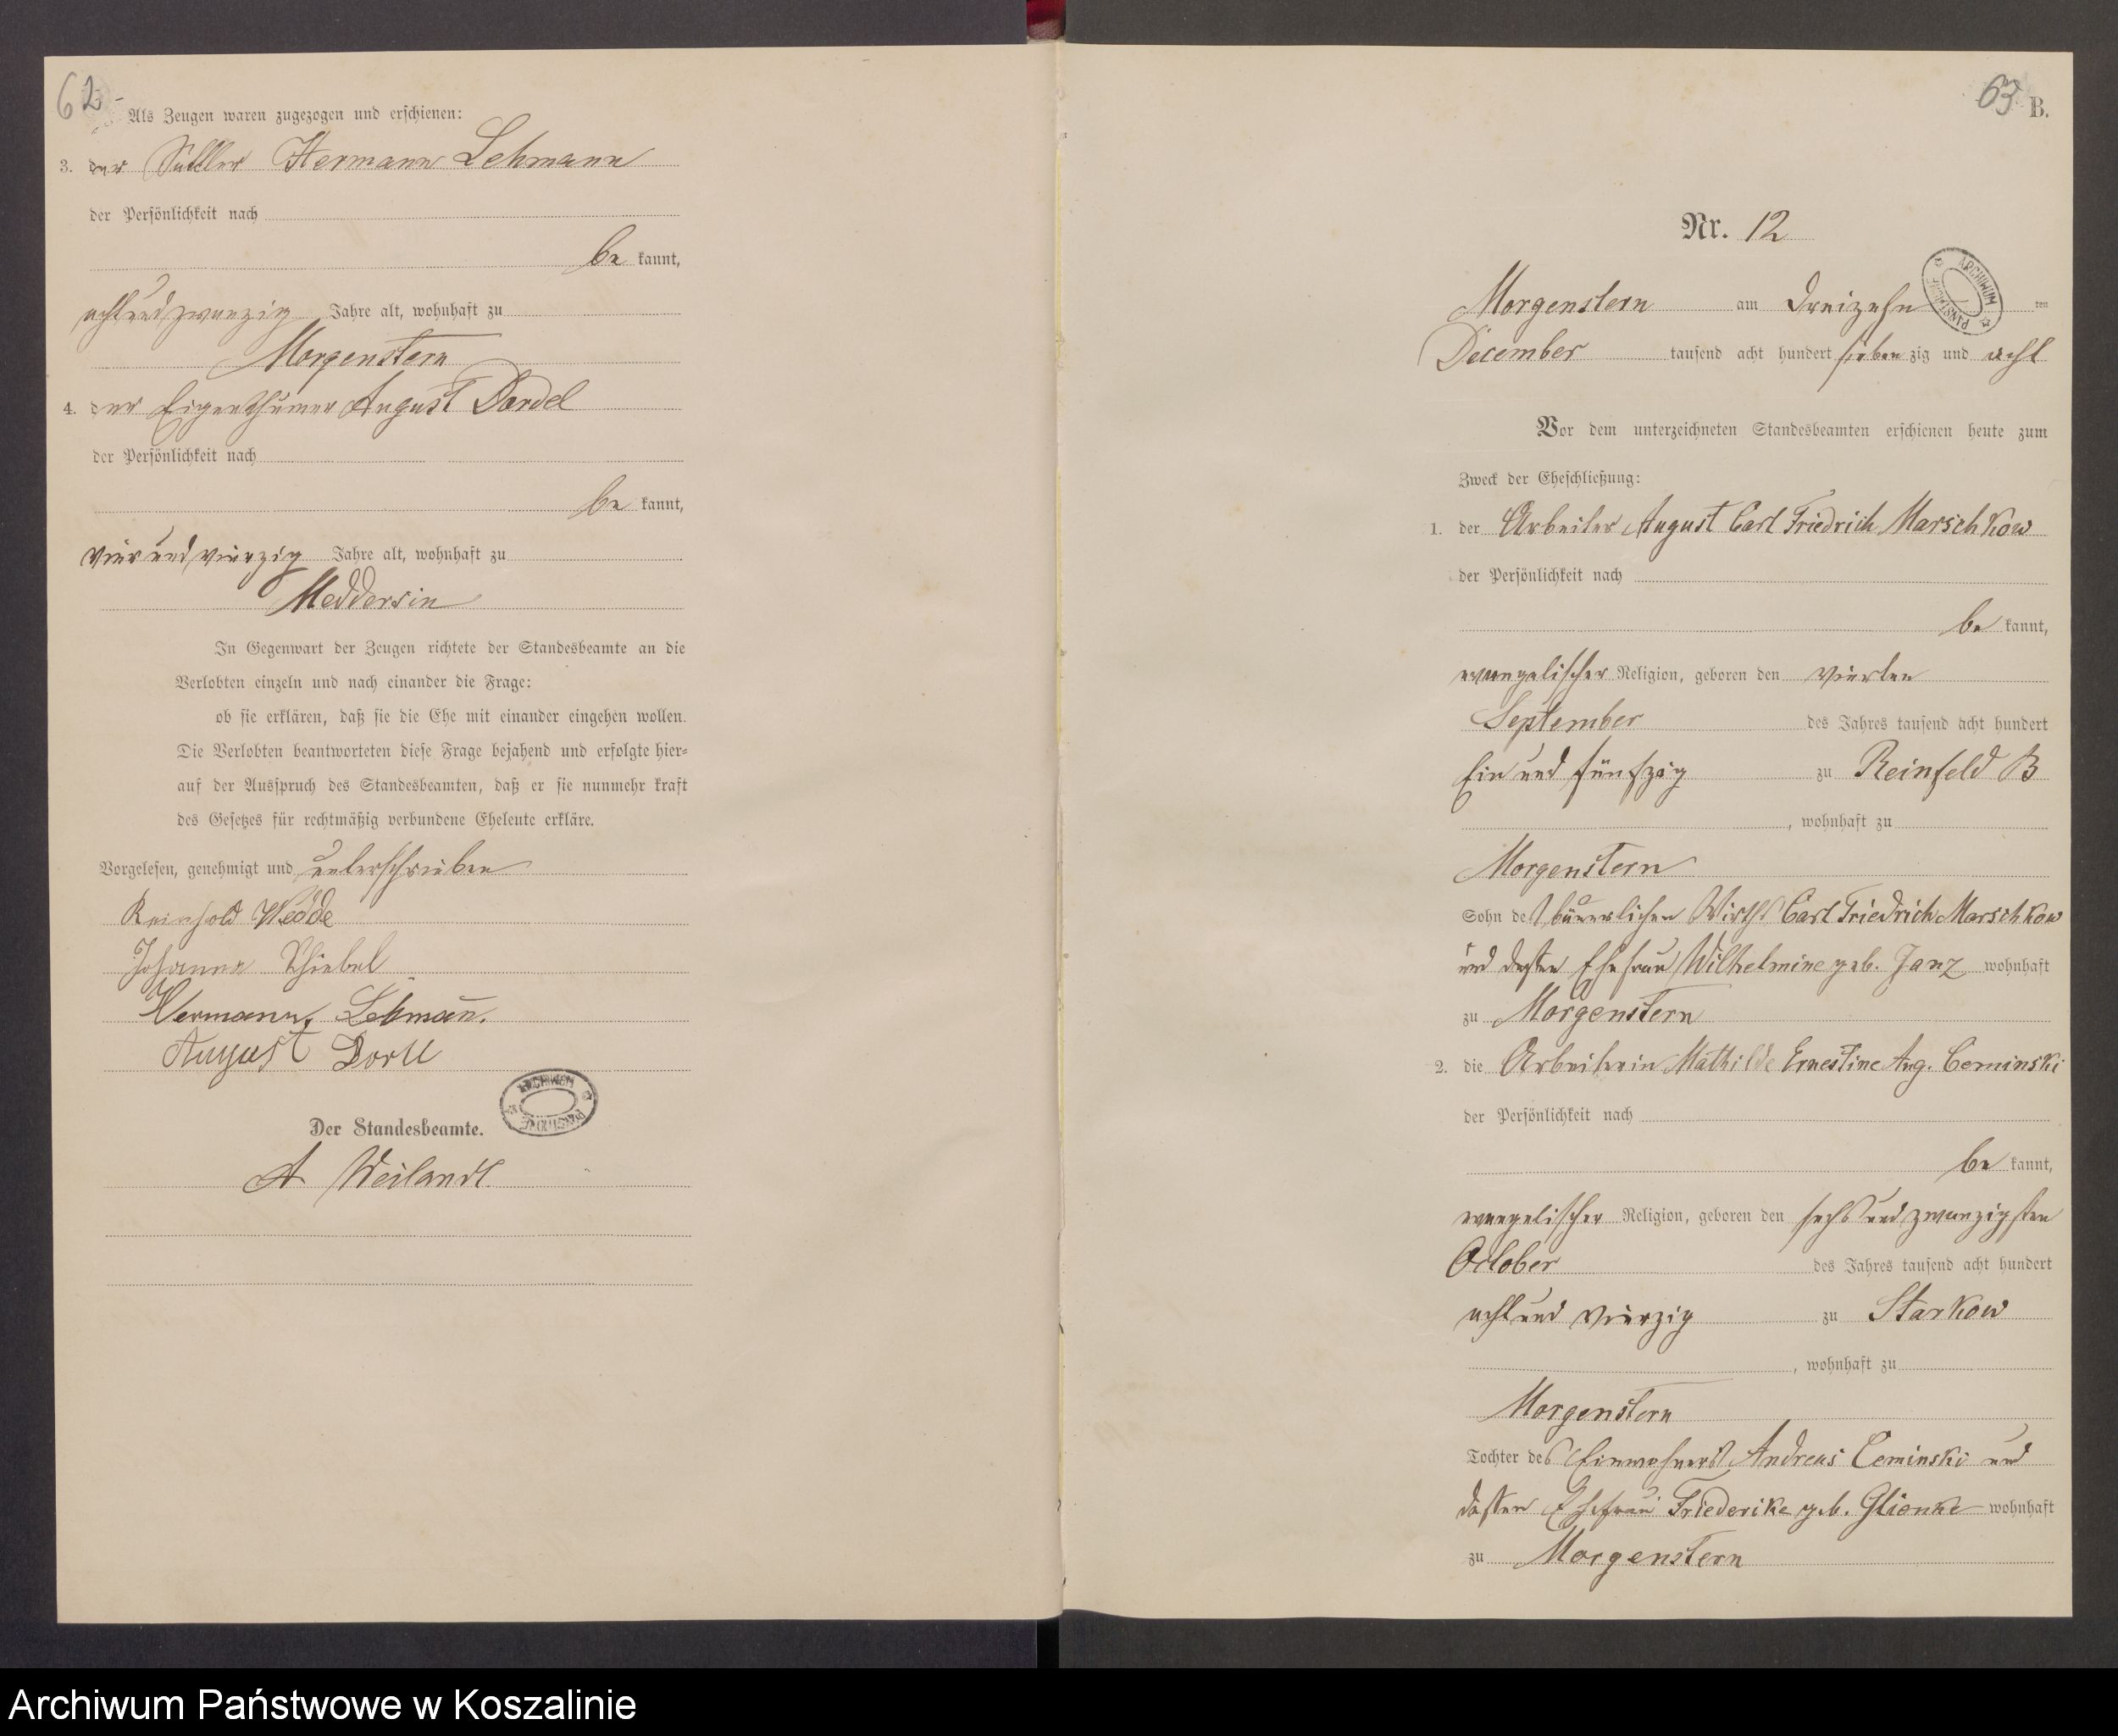 62
Als Zeugen waren zugezogen und erschienen:
3. der Sattler Hermann Lehmann
der Persönlichkeit nach
be kannt,
achtundzwanzig Jahre alt, wohnhaft zu
Morgenstern
4. der Eigenthümer August Dordel
der Persönlichkeit nach
be kannt,
vierundvierzig Jahre alt, wohnhaft zu
Meddersin
In Gegenwart der Zeugen richtete der Standesbeamte an die
Verlobten einzeln und nach einander die Frage:
ob sie erklären, daß sie die Ehe mit einander eingehen wollen.
Die Verlobten beantworteten diese Frage bejahend und erfolgte hier-
auf der Ausspruch des Standesbeamten, daß er sie nunmehr kraft
des Gesetzes für rechtmäßig verbundene Eheleute erkläre.
Vorgelesen, genehmigt und unterschrieben
Reinhold Wedde
Johanna Schiebel
Hermann Lehmann.
August
ARCHIWUM PAŃSTWOWE
Der Standesbeamte.
A Weilandt
63 B.
Nr. 12
ARCHIWUM PAŃSTWOWE
Morgenstern am dreizehn ten
December tausend acht hundert sieben zig und acht
Vor dem unterzeichneten Standesbeamten erschienen heute zum
Zweck der Eheschließung:
1. der Arbeiter August Carl Friedrich Marschkow
der Persönlichkeit nach
be kannt,
evangelischer Religion, geboren den vierten
September des Jahres tausend acht hundert
Ein und fünfzig zu Reinfeld B
, wohnhaft zu
Morgenstern
Sohn des bäuerlichen Wirths Carl Friedrich Marschkow
und dessen Ehefrau Wilhelmine geb. Janz wohnhaft
zu Morgenstern
2. die Arbeiterin Mathilde Ernestine Aug. Ceminski
der Persönlichkeit nach
be kannt,
evangelischer Religion, geboren den sechsundzwanzigsten
October des Jahres tausend acht hundert
acht und vierzig zu Starkow
, wohnhaft zu
Morgenstern
Tochter des Einwohners Andreas Ceminski und
dessen Ehefrau Friederike geb. Glienke wohnhaft
zu Morgenstern
Archiwum Państwowe w Koszalinie